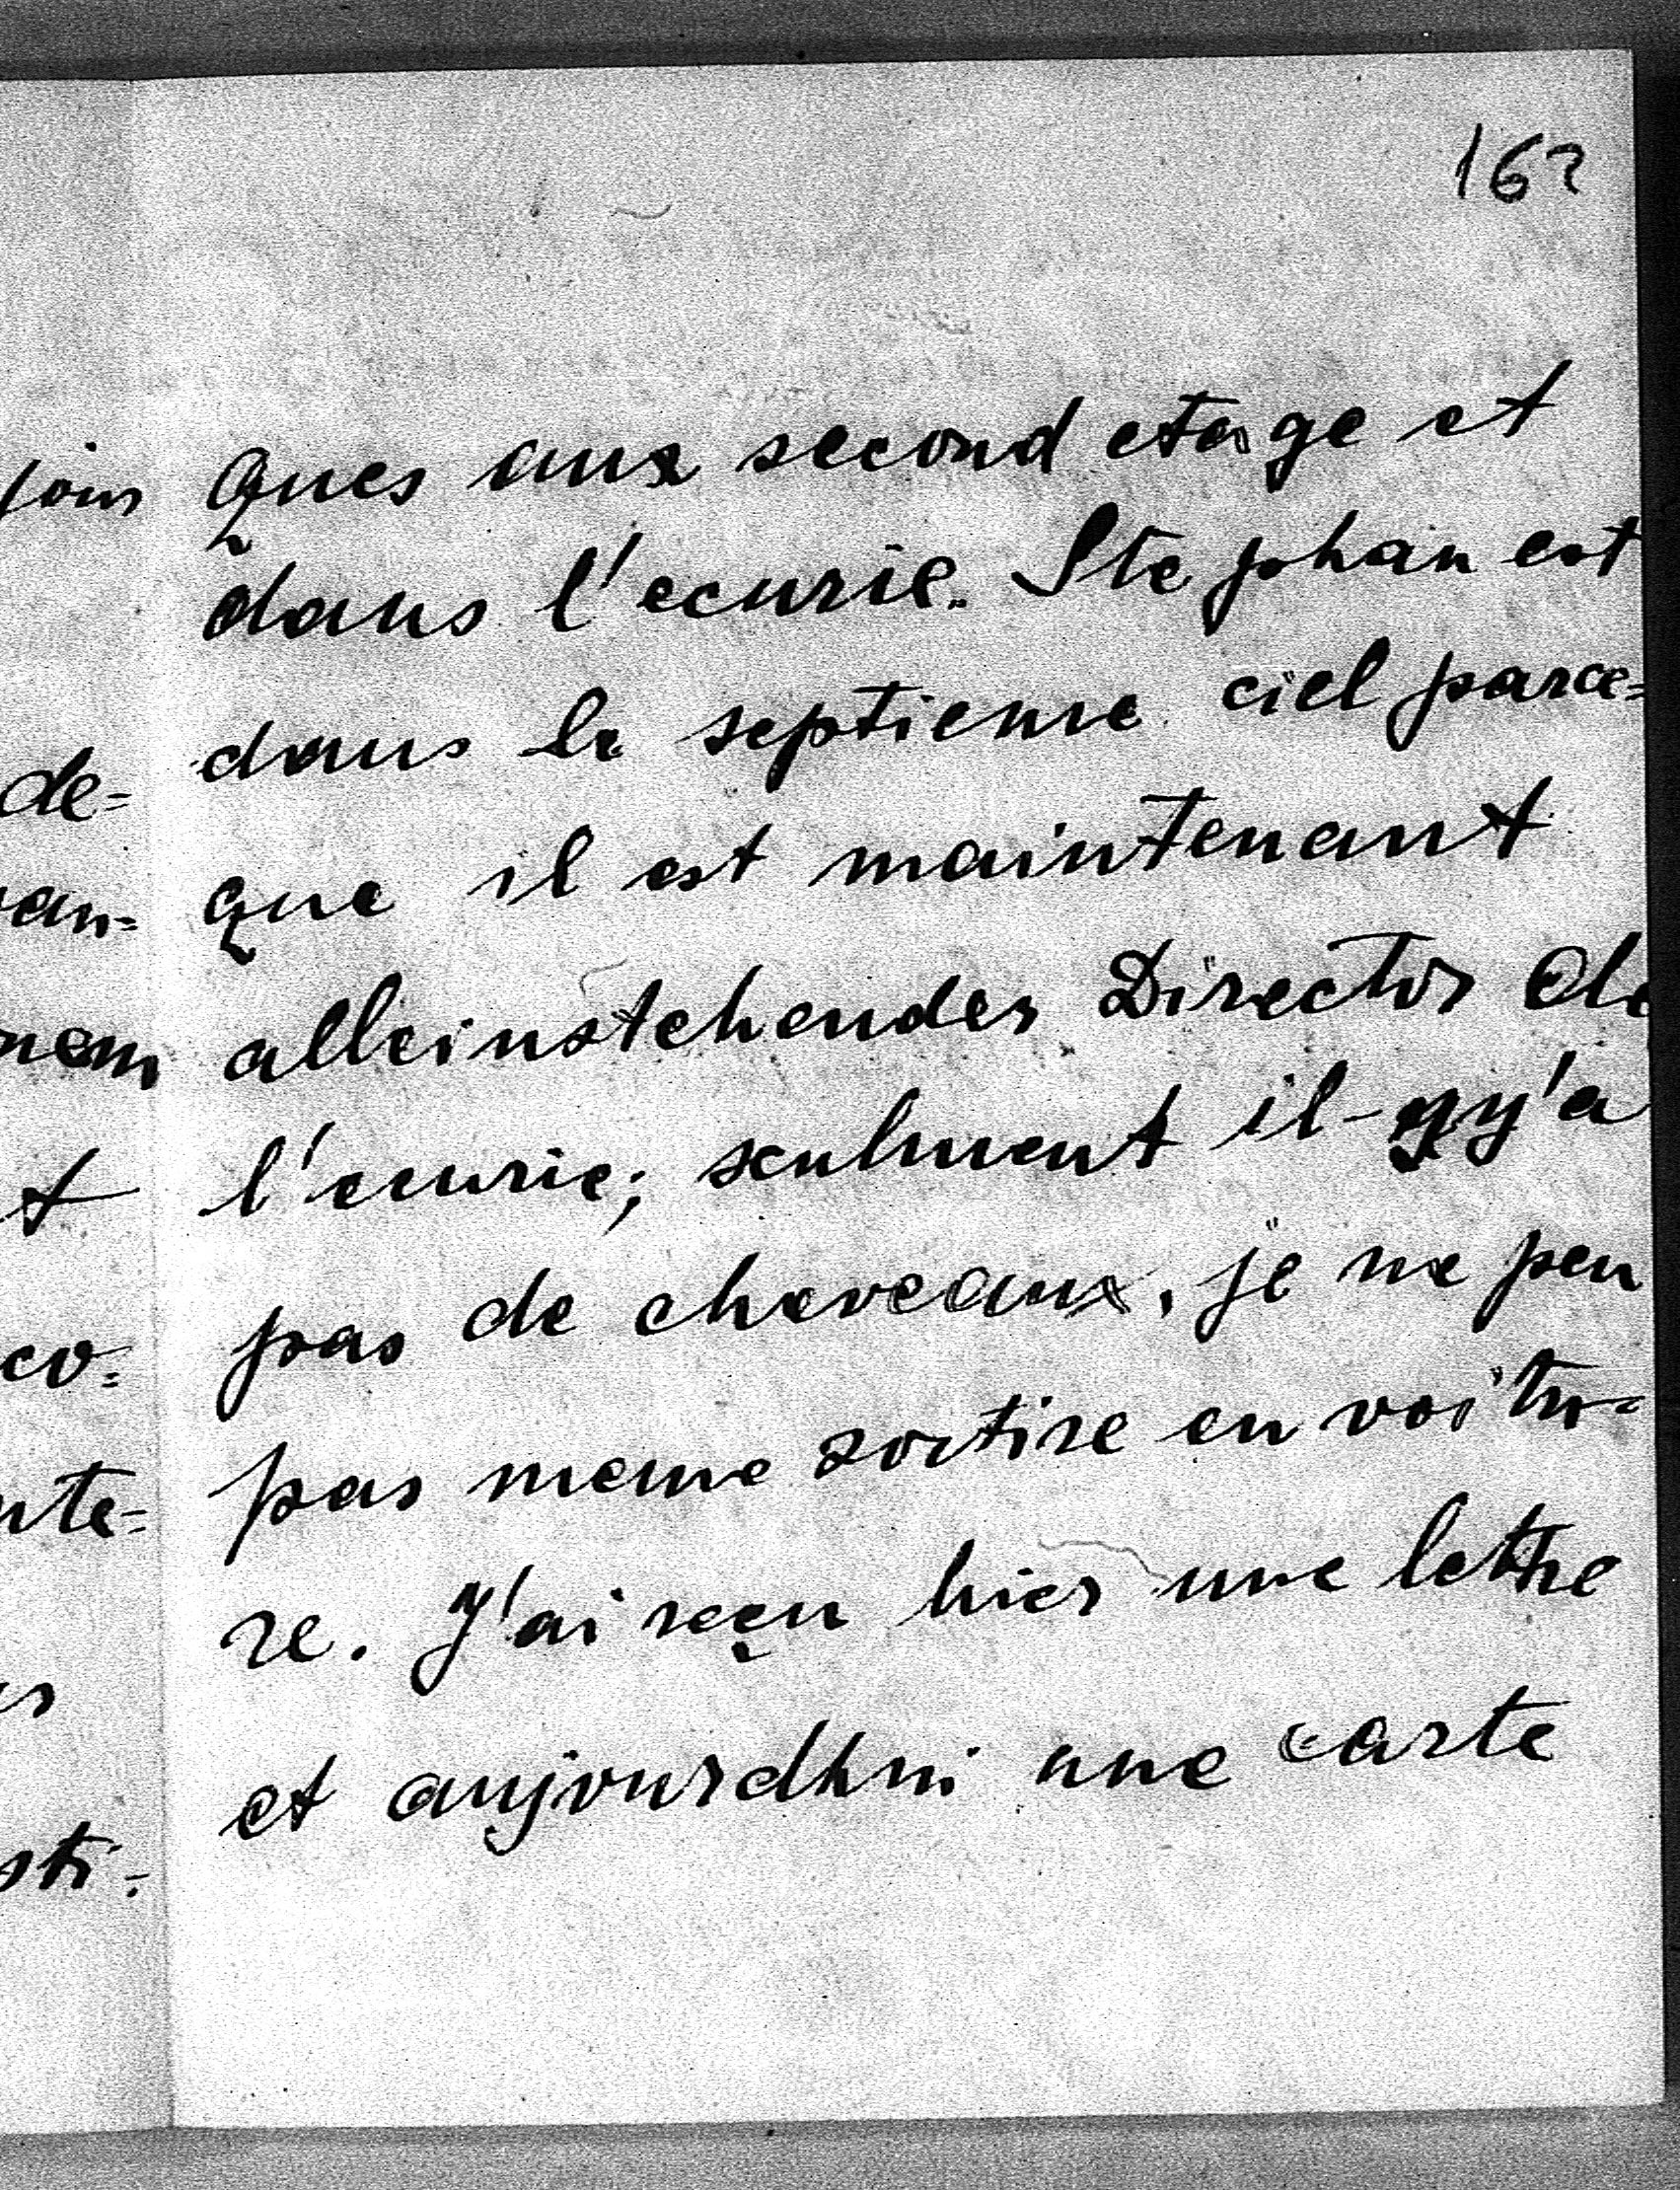 162
ques aux second etage et
dans l'ecurie. Stephan est
dans le septieme ciel parce=
que il est maintenant
alleinstehender Director de
l'ecurie; seulment il-y'a
pas de cheveaux, je ne peu
pas meme sortire en voitu=
re. J'ai reçu hier une lettre
et aujourdhui une carte
de=
nem
t
co=
nte=
sti=